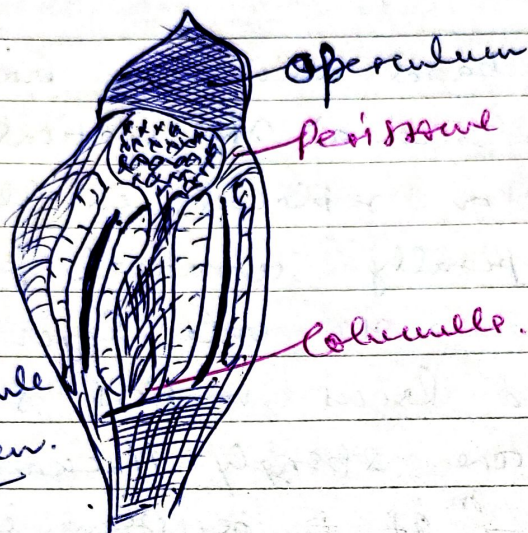 Operculum
Peristome
Columella.